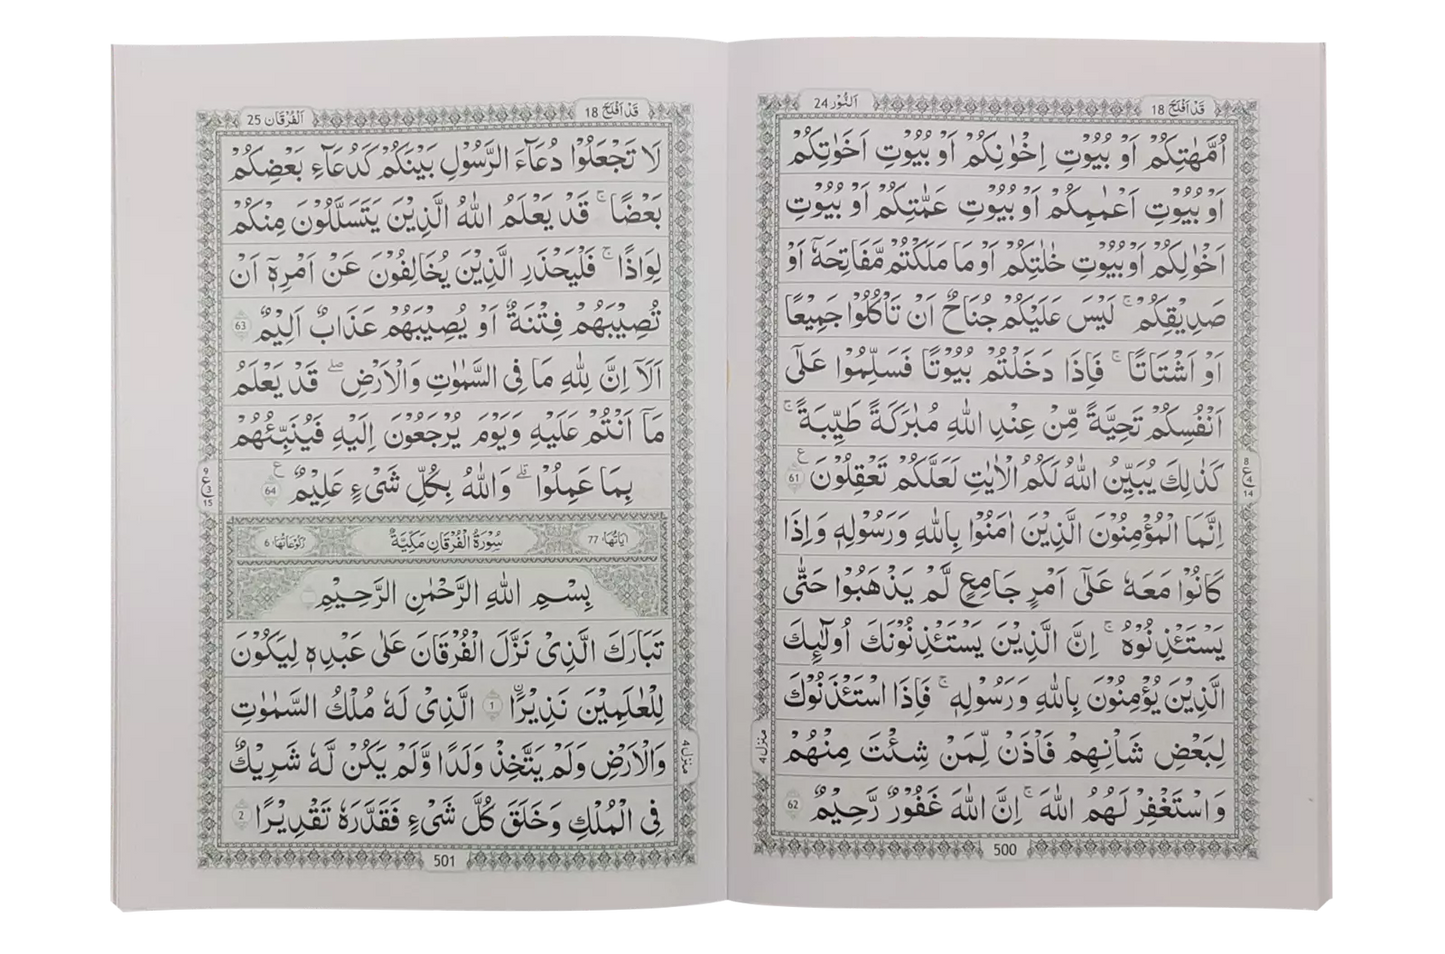 قَدْ اَفْلَحَ 18
اَلنُّوْر 24
اُمَّهٰتِكُمْ اَوْ بُيُوْتِ اِخْوَانِكُمْ اَوْ بُيُوْتِ اَخَوٰتِكُمْ
اَوْ بُيُوْتِ اَعْمَامِكُمْ اَوْ بُيُوْتِ عَمّٰتِكُمْ اَوْ بُيُوْتِ
اَخْوَالِكُمْ اَوْ بُيُوْتِ خٰلٰتِكُمْ اَوْ مَا مَلَكْتُمْ مَّفَاتِحَهٗۤ اَوْ
صَدِيْقِكُمْ ؕ لَيْسَ عَلَيْكُمْ جُنَاحٌ اَنْ تَاْكُلُوْا جَمِيْعًا
اَوْ اَشْتَاتًا ؕ فَاِذَا دَخَلْتُمْ بُيُوْتًا فَسَلِّمُوْا عَلٰۤى
اَنْفُسِكُمْ تَحِيَّةً مِّنْ عِنْدِ اللّٰهِ مُبٰرَكَةً طَيِّبَةً ؕ
كَذٰلِكَ يُبَيِّنُ اللّٰهُ لَكُمُ الْاٰيٰتِ لَعَلَّكُمْ تَعْقِلُوْنَ ع 61
8 ع 4 14
اِنَّمَا الْمُؤْمِنُوْنَ الَّذِيْنَ اٰمَنُوْا بِاللّٰهِ وَرَسُوْلِهٖ وَاِذَا
كَانُوْا مَعَهٗ عَلٰۤى اَمْرٍ جَامِعٍ لَّمْ يَذْهَبُوْا حَتّٰى
يَسْتَـئْذِنُوْهُ ؕ اِنَّ الَّذِيْنَ يَسْتَـئْذِنُوْنَكَ اُولٰٓئِكَ
الَّذِيْنَ يُؤْمِنُوْنَ بِاللّٰهِ وَرَسُوْلِهٖ ۚ فَاِذَا اسْتَـئْذَنُوْكَ
لِبَعْضِ شَاْنِهِمْ فَاْذَنْ لِّمَنْ شِئْتَ مِنْهُمْ
منزل ٤
وَاسْتَغْفِرْ لَهُمُ اللّٰهَ ؕ اِنَّ اللّٰهَ غَفُوْرٌ رَّحِيْمٌ 62
500
قَدْ اَفْلَحَ 18
اَلْفُرْقَان 25
لَا تَجْعَلُوْا دُعَآءَ الرَّسُوْلِ بَيْنَكُمْ كَدُعَآءِ بَعْضِكُمْ
بَعْضًا ؕ قَدْ يَعْلَمُ اللّٰهُ الَّذِيْنَ يَتَسَلَّلُوْنَ مِنْكُمْ
لِوَاذًا ۚ فَلْيَحْذَرِ الَّذِيْنَ يُخَالِفُوْنَ عَنْ اَمْرِهٖۤ اَنْ
تُصِيْبَهُمْ فِتْنَةٌ اَوْ يُصِيْبَهُمْ عَذَابٌ اَلِيْمٌ 63
اَلَاۤ اِنَّ لِلّٰهِ مَا فِى السَّمٰوٰتِ وَالْاَرْضِ ؕ قَدْ يَعْلَمُ
مَاۤ اَنْتُمْ عَلَيْهِ وَيَوْمَ يُرْجَعُوْنَ اِلَيْهِ فَيُنَبِّئُهُمْ
بِمَا عَمِلُوْا ؕ وَاللّٰهُ بِكُلِّ شَىْءٍ عَلِيْمٌ ع 64
9 ع 3 15
اٰيَاتُهَا، 77 سُوْرَةُ الْفُرْقَانِ مَكِّيَّةٌ رُكُوْعَاتُهَا، 6
بِسْمِ اللّٰهِ الرَّحْمٰنِ الرَّحِيْمِ
تَبٰرَكَ الَّذِىْ نَزَّلَ الْفُرْقَانَ عَلٰى عَبْدِهٖ لِيَكُوْنَ
لِلْعٰلَمِيْنَ نَذِيْرًا ۙ 1 الَّذِىْ لَهٗ مُلْكُ السَّمٰوٰتِ
منزل ٤
وَالْاَرْضِ وَلَمْ يَتَّخِذْ وَلَدًا وَّلَمْ يَكُنْ لَّهٗ شَرِيْكٌ
فِى الْمُلْكِ وَخَلَقَ كُلَّ شَىْءٍ فَقَدَّرَهٗ تَقْدِيْرًا 2
501